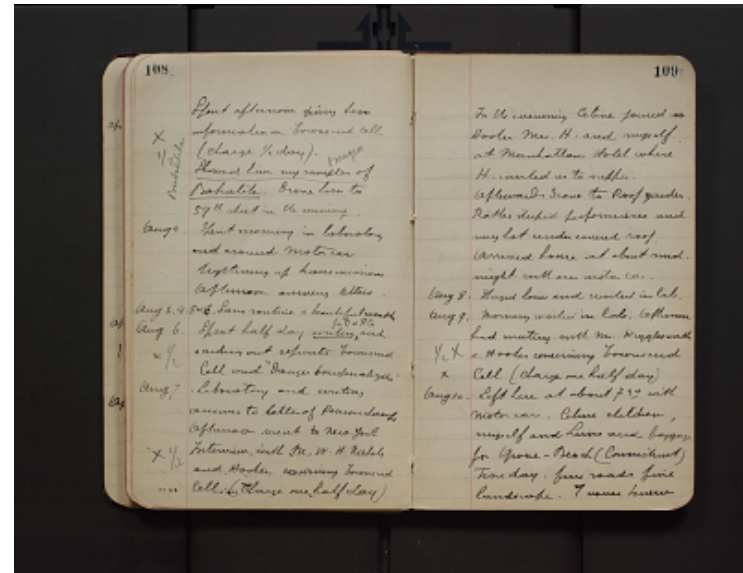 108
Spent afternoon giving him
information Townsend Cell
(charge ½ day).
Showed him my samples of
Bakalite. Drove him to
59th street in the evening.
Bakelite
Aug 2. Spent morning in laboratory
and around motor car
tightening up transmission
Afternoon answering letters.
Aug 3. 4. 5. Same routine & beautiful weather
Aug 6. Spent half day writing and
sending out reports Townsend
x ½
Cell and
Aug 7. Laboratory and writing
answer to letter of
Afternoon went to New York
x ½
Interview with Mr. W. H. Nichols
and Hooker concerning Townsend
Cell. (Charge one half day)
109
In the evening Celine joined us
Hooker Mrs. H. and myself
at Manhattan Hotel where
H. invited us to supper.
Afterwards drove to Roof garden.
Rather stupid performance and
very hot under covered roof.
Arrived home at about mid-
night with our motor car.
Aug 8. Stayed home and worked in lab.
Aug 9. Morning worked in lab. Afternoon
had meeting with Mr. Wigglesworth
½ x & Hooker concerning Townsend
x Cell (Charge one half day)
Aug 10. Left here at about 7 30 with
motor car. Celine children,
myself and and baggage
for Grove-Beach (Connecticut)
Fine day. fine roads fine
landscape. I never knew